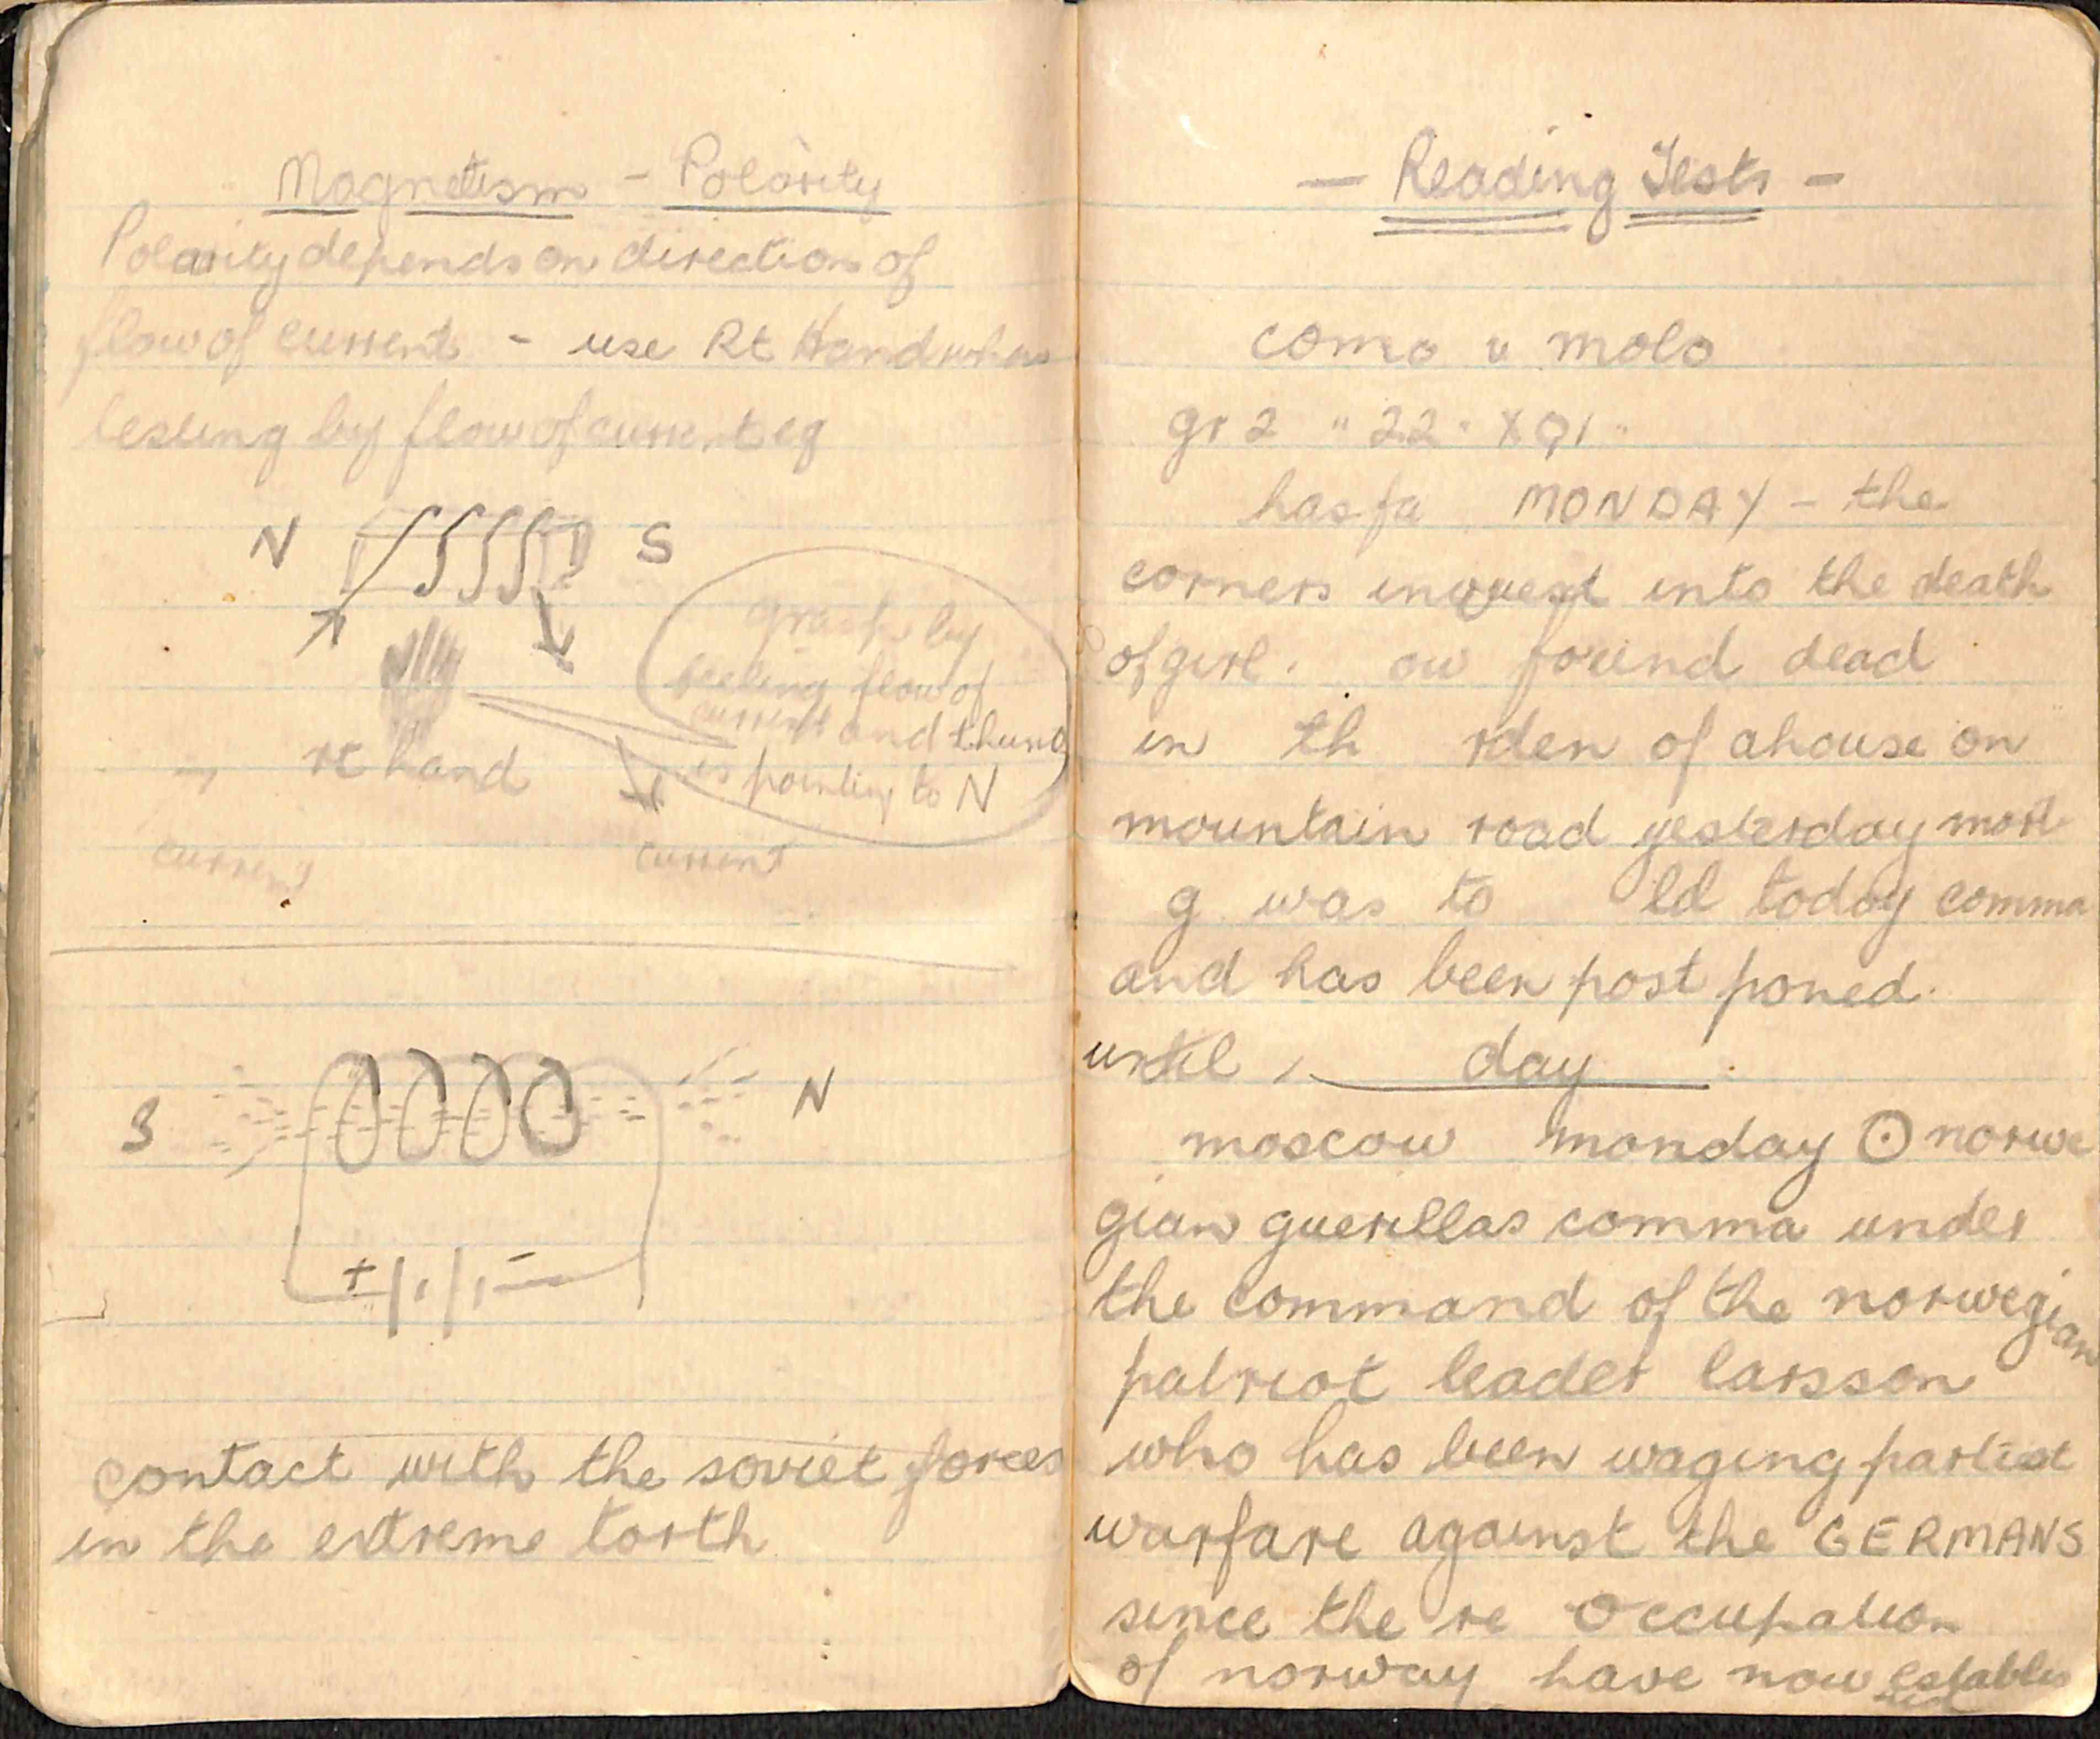 Magnetism - Polarity
Polarity depends on direction of
flow of current - use Rt Hand when
testing by flow of current eg
N S
grasp by
feeling flow of
current and thumb
is pointing to N
rt hand
current current
S N
+ -
contact with the soviet forces
in the extreme torth
- Reading Tests -
como v molo
gr 2 " 22 "
hasfa MONDAY - the
corners inquest into the death
of girl. ow found dead
in th rden of a house on
mountain road yesterday mort
g was to ld today comma
and has been post poned.
until day
moscow monday ⊙ norwe
gian guerillas comma under
the command of the norwegian
patriot leader larsson
who has been waging partist
warfare against the GERMANS
since the re occupation
of norway have now establis